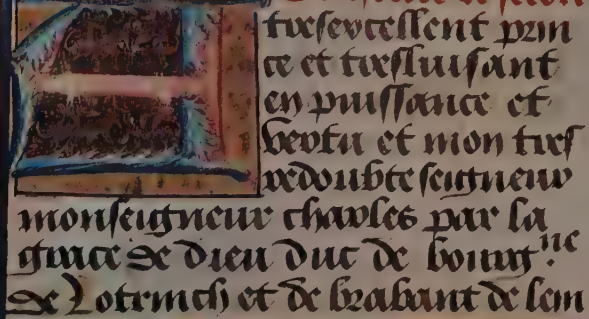 A tresexcellent prin
ce et tresluisant
en puissance et
vertu et mon tres
redoubte seigneur
monseigneur charles par la
grace de dieu duc de bourg.ne
de Lotrinch et de brabant de lem